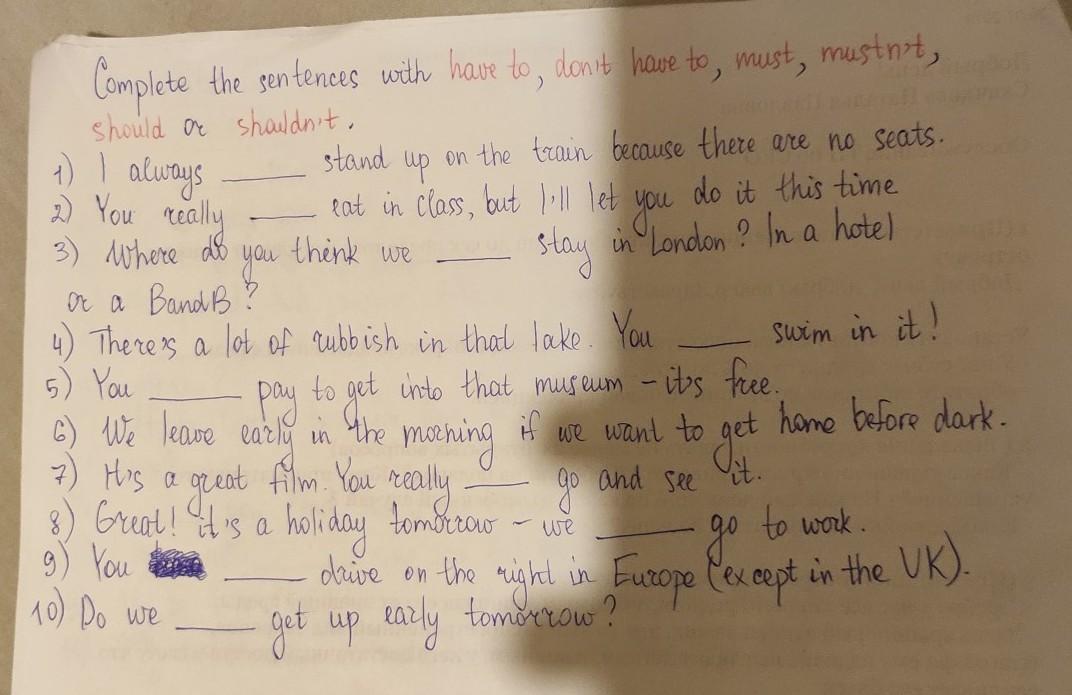 Complete the sentences with have to, don't have to, must, mustn't,
should or shouldn't.
1) I always _____ stand up on the train because there are no seats.
2) You really ____ eat in class, but I'll let you do it this time
3) Where do you think we _____ stay in London? In a hotel
or a BandB?
4) There's a lot of rubbish in that lake. You ____ swim in it!
5) You _____ pay to get into that museum – it's free.
6) We leave early in the morning if we want to get home before dark.
7) It's a great film. You really ____ go and see it.
8) Great! it's a holiday tomorrow – we _____ go to work.
9) You _____ drive on the right in Europe (except in the UK).
10) Do we _____ get up early tomorrow?